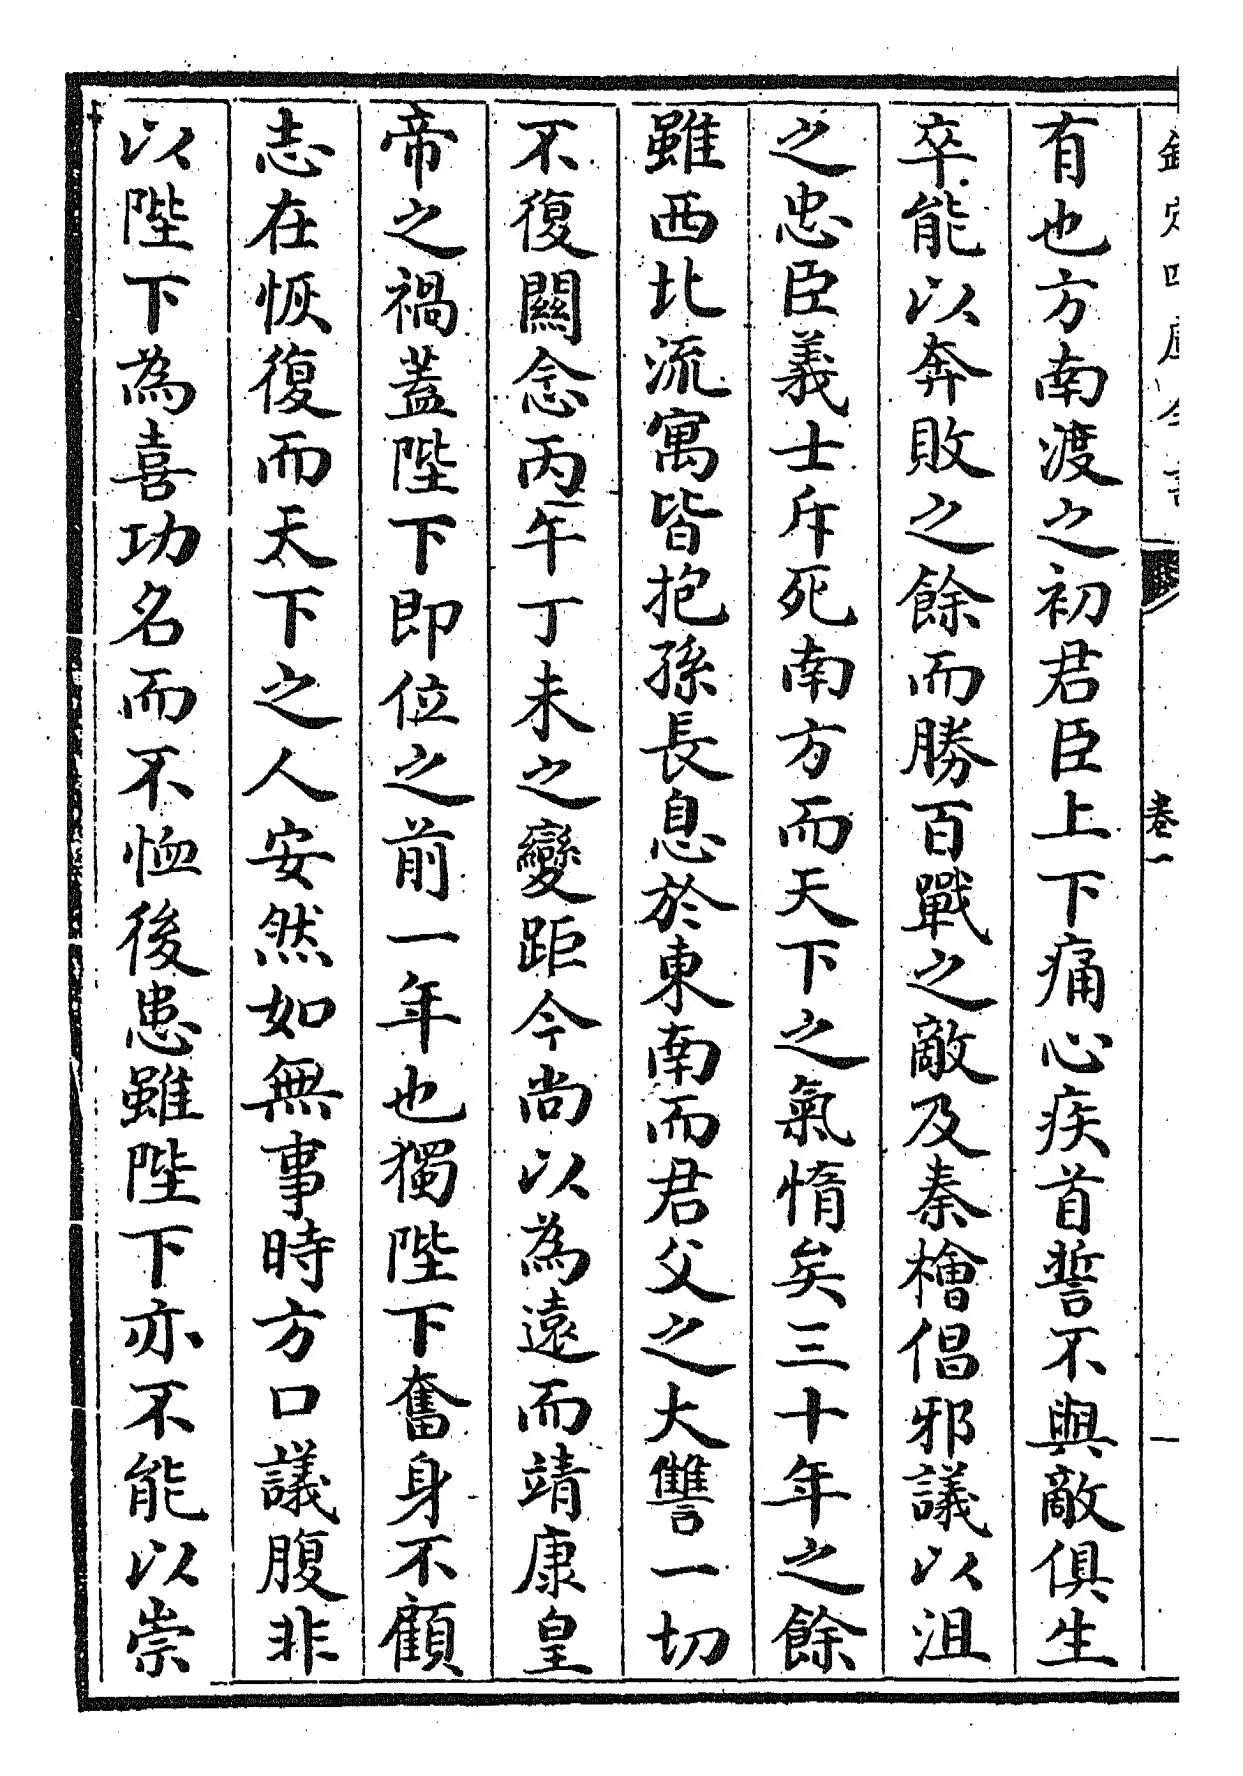 欽定四庫全書 卷一
有也方南渡之初君臣上下痛心疾首誓不與敵俱生
卒能以奔敗之餘而勝百戰之敵及秦檜倡邪議以沮
之忠臣義士斥死南方而天下之氣惰矣三十年之餘
雖西北流寓皆抱孫長息於東南而君父之大讐一切
不復關念丙午丁未之變距今尚以為遠而靖康皇
帝之禍蓋陛下即位之前一年也獨陛下奮身不顧
志在恢復而天下之人安然如無事時方口議腹非
以陛下為喜功名而不恤後患雖陛下亦不能以崇